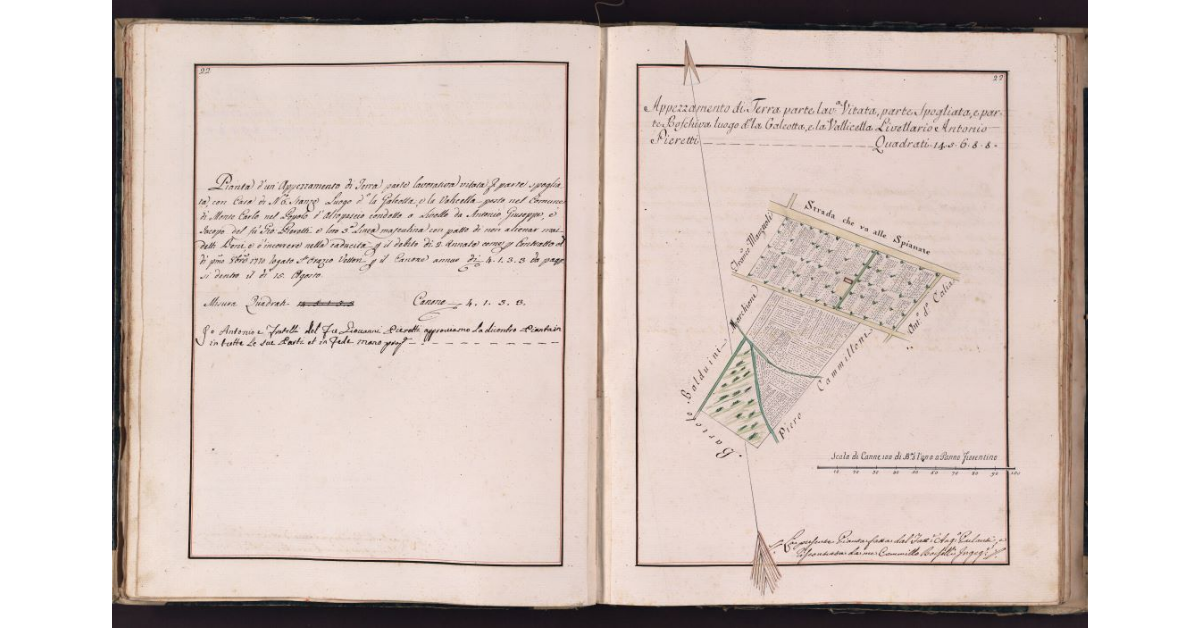 22
Pianta d'un Appezzamento di Terra parte lavorativa vitata, e parte spoglia-
ta, con Casa di N.º 6. Stanze Luogo d.º la Galeotta, e la Valicella posto nel Comune
di Monte Carlo nel Popolo d'Altopascio condotto a Livello da Antonio, Giuseppe, e
Jacopo del fu Pio Pieretti e loro 3.ª Linea mascolina con patto di non alienar mai
detti Beni, e d'incorrere nella caducità p il debito di 2. Annate come p Contratto
di 1730 rogato Orazio Vettori p il Canone annuo di 4. 1. 3. 8 da pagar-
si dentro il dì 15. Agosto.
Misura Quadrati 14.5.6.8.8 Canone 4. 1. 3. 8.
Io Antonio e Fratelli del Pieretti approviamo la di contro Pianta in
in tutte le sue Parti et in Fede mano prop.ª
22
Appezzamento di Terra parte lav.ª Vitata, parte Spogliata, e par-
te Boschiva luogo d.º la Galeotta, e la Vallicella Livellario Antonio
Pieretti Quadrati 14. 5. 6. 8. 8.
Strada che va alle Spianate
Ant.º d.º Calis
Piero Cammilloni
Bartolo Balduini
Marchioni
Scala di Canne 100 di B.ª 5 l'una a Panno Fiorentino
10 20 30 40 50 60 70 80 90 100
La presente Pianta fatta dal
Riscontrata da me Cammillo Ingeg.